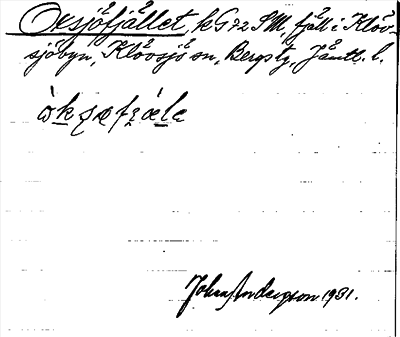 Oxsjöfjället, kG 72 SM, fjäll i Klöv-
sjöbyn, Klövsjö sn, Bergs tg, Jämtl. l.
Johan Anderson 1931.